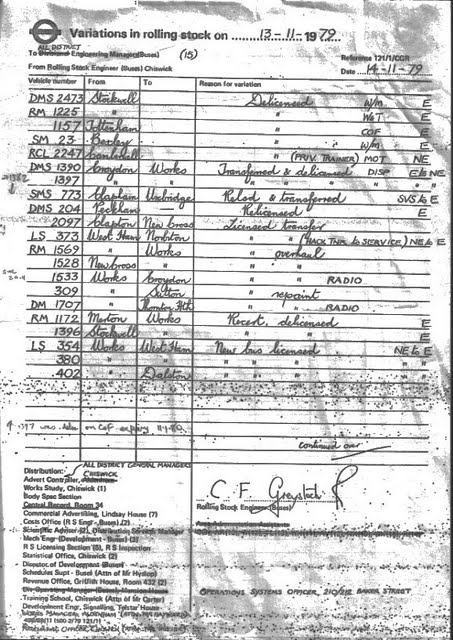 Variations in rolling stock on 13-11-1979
ALL DISTRICT
To Divisional Engineering Manager (Buses) (15)
Reference 121/1/CGR
From Rolling Stock Engineer (Buses) Chiswick
Date 14-11-79
Vehicle number From To Reason for variation
DMS 2473 Stockwell Delicensed W/M E
RM 1225 " " W&T E
1157 Tottenham " COF E
SM 23 Bexley " W/M E
RCL 2247 Camberwell " (PRIV. TRAINER) MOT NE
DMS 1390 Croydon Works Transferred & delicensed DISP E to NE
1397 " " " " " " "
SMS 773 Clapham Uxbridge Relsd & transferred SVS to E
DMS 204 Peckham Relicensed E
2097 Clapton New Cross Licensed Transfer
LS 373 West Ham Norbiton " " (HACK TNR to SERVICE) NE to E
RM 1569 " Works " " overhaul
1528 New Cross " " "
1533 Works Croydon " " " RADIO
309 " Sutton " " repaint
DM 1707 " Thornton Hth " " " RADIO
RM 1172 Merton Works Recert. delicensed E
1396 Stockwell " " " E
LS 354 Works West Ham New bus licensed NE to E
380 " " " " "
402 " Dalston " " "
on CoF expiry
continued over
Distribution: ALL DISTRICT GENERAL MANAGERS
CHISWICK
Advert Controller,
Works Study, Chiswick (1)
Body Spec Section
Central Record, Room 34
Commercial Advertising, Lindsay House (7)
Costs Office (R S Engr - Buses) (2)
Scientific Adviser (2),
Mech Engr (Development - Buses) (3)
R S Licensing Section (5), R S Inspection
Statistical Office, Chiswick (2)
Director of Development (Buses)
Schedules Supt - Buses (Attn of Mr Hyslop)
Revenue Office, Griffith House, Room 432 (2)
Training School, Chiswick (Attn of Mr Carter)
Development Engr, Signalling, Telstar House
C F Greystock
Rolling Stock Engineer (Buses)
OPERATIONS SYSTEMS OFFICER, 210/212 BAKER STREET